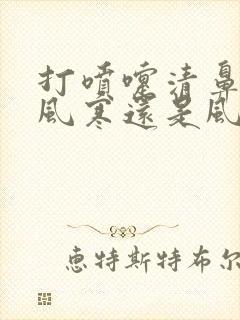 打噴嚏清鼻
風寒還是風
恵特斯特布尔